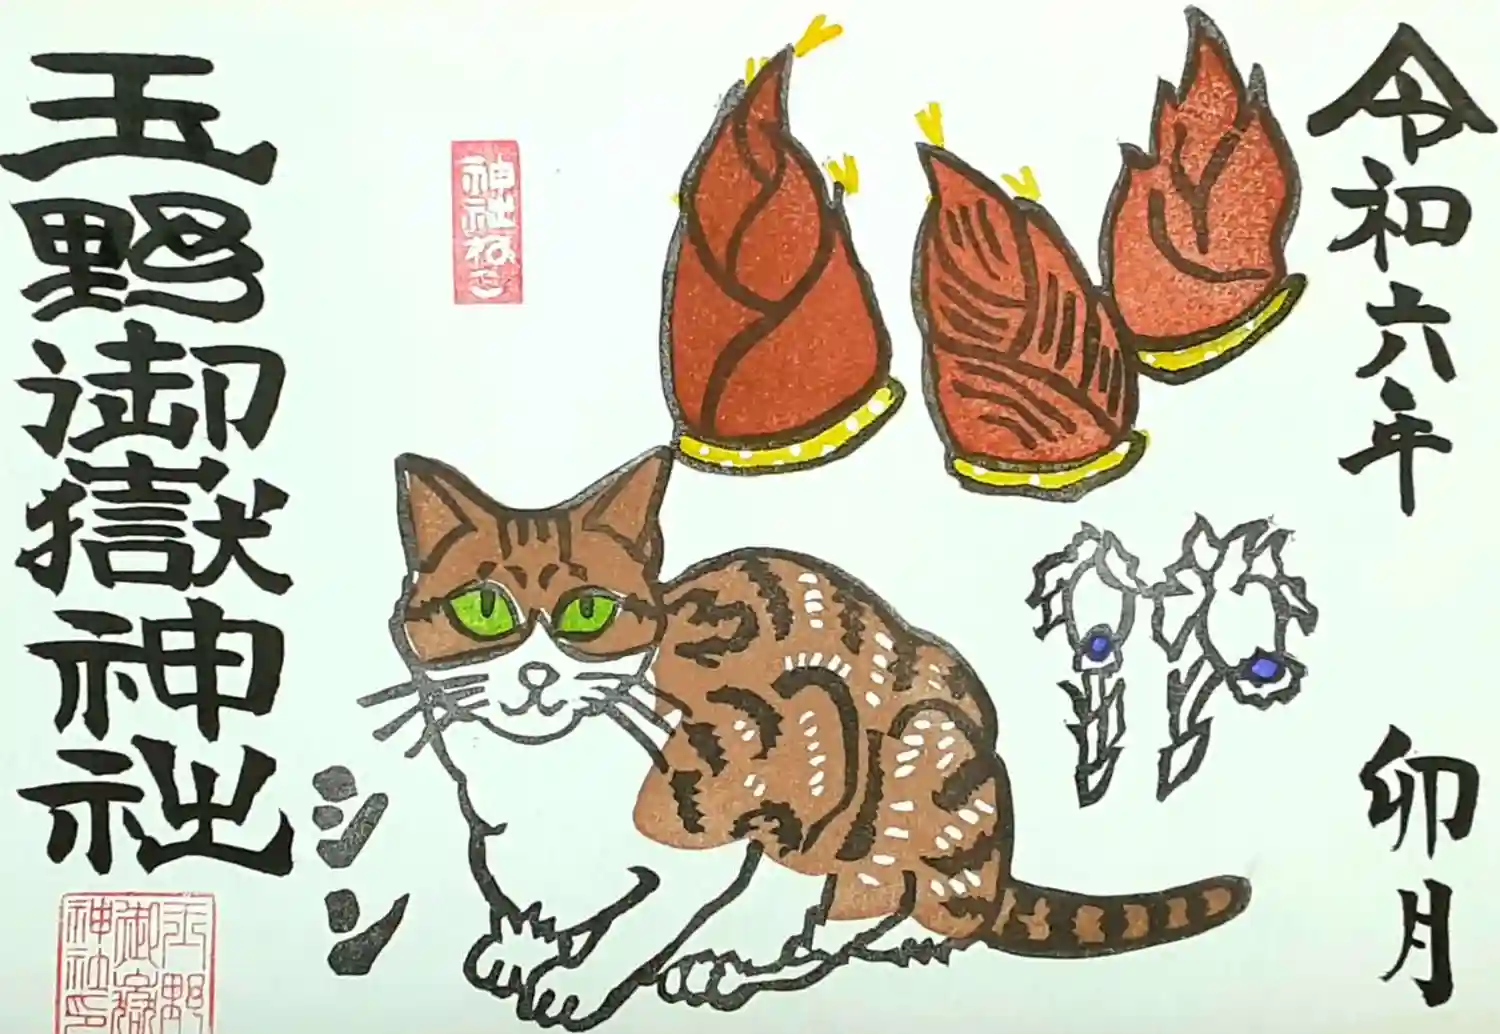 令和六年
卯月
神社ねこ
シシ
玉野御嶽神社
玉野御嶽神社印